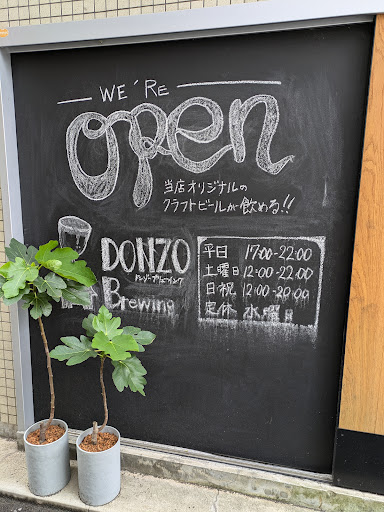 WE'RE
open
当店オリジナルの
クラフトビールが飲める!!
DONZO
ドンゾーブリューイング
Brewing
平日 17:00-22:00
土曜日 12:00-22:00
日・祝 12:00-20:00
定休 水曜日